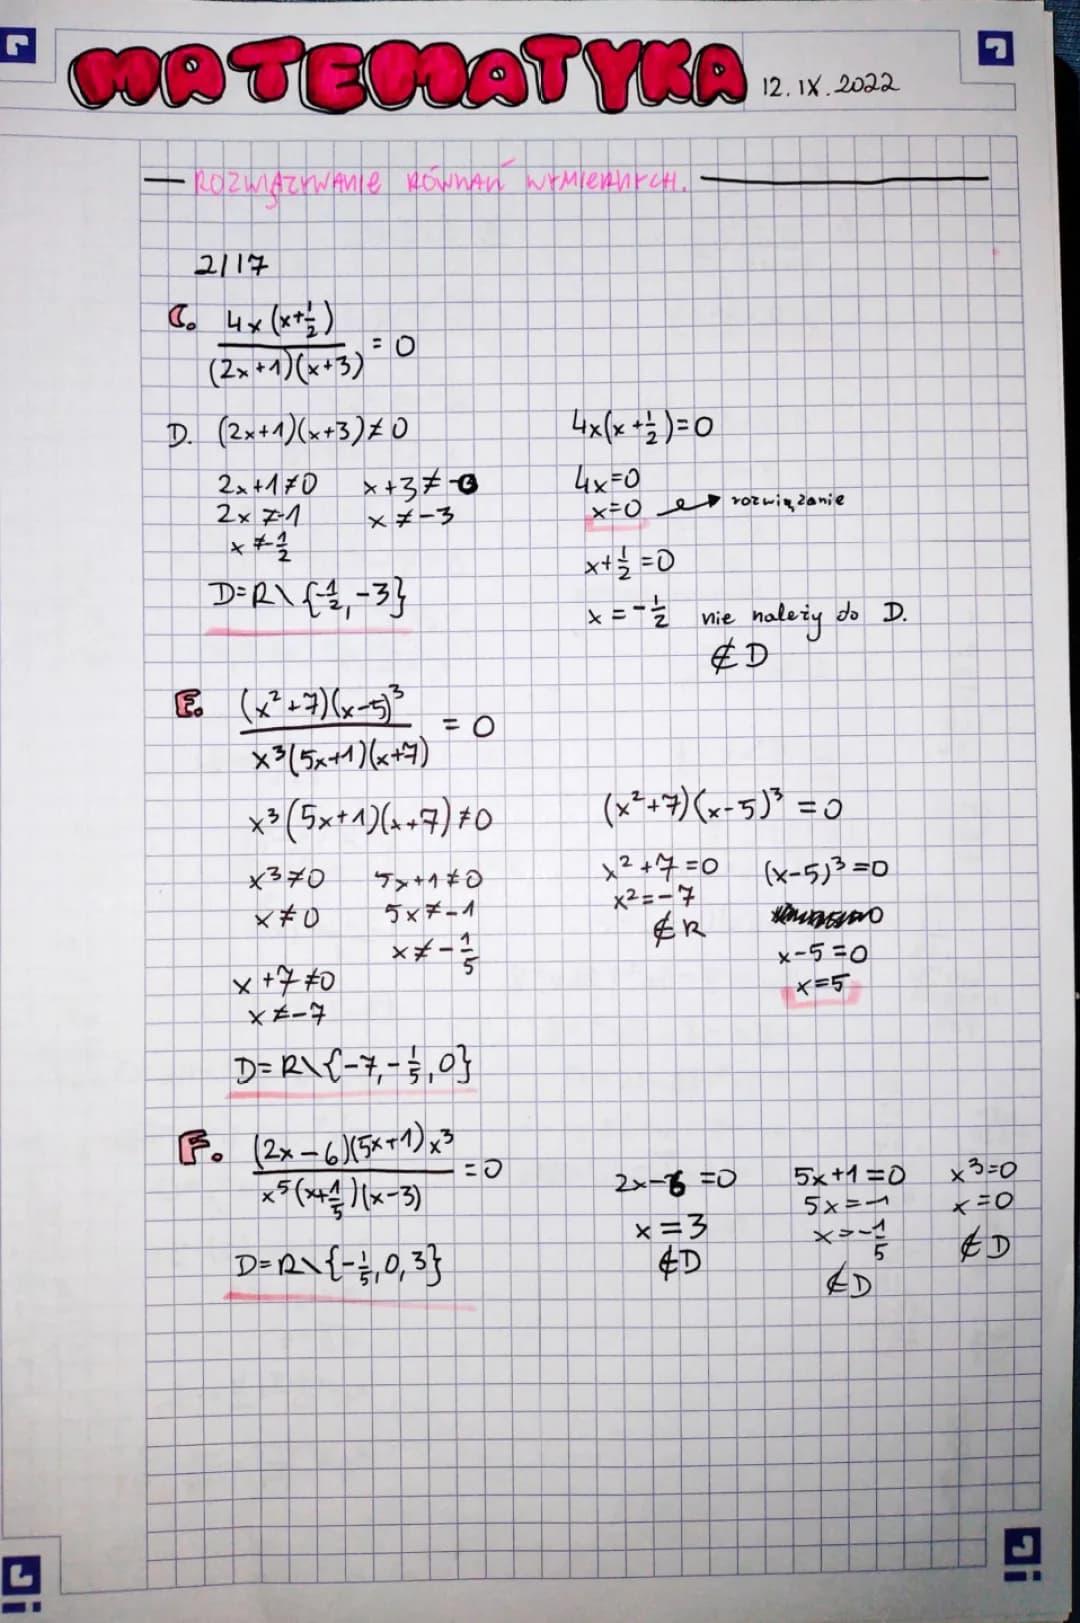 MATEMATYKA 12.IX.2022
ROZWIĄZYWANIE RÓWNAŃ WYMIERNYCH.
2/17
C. 4x(x+1/2) / (2x+1)(x+3) = 0
D. (2x+1)(x+3)≠0
2x+1≠0 x+3≠0
2x≠-1 x≠-3
x≠-1/2
D=R\{-1/2, -3}
4x(x+1/2)=0
4x=0
x=0 → rozwiązanie
x+1/2=0
x=-1/2 nie należy do D.
∉D
E. (x²+7)(x-5)³ / x³(5x+1)(x+7) = 0
x³(5x+1)(x+7)≠0
x³≠0 5x+1≠0
x≠0 5x≠-1
x≠-1/5
x+7≠0
x≠-7
D=R\{-7,-1/5,0}
(x²+7)(x-5)³=0
x²+7=0 (x-5)³=0
x²=-7
∉R
x-5=0
x=5
F. (2x-6)(5x+1)x³ / x⁵(x+1/5)(x-3) =0
D=R\{-1/5,0,3}
2x-6=0 5x+1=0 x³=0
x=3 5x=-1 x=0
∉D x=-1/5 ∉D
∉D